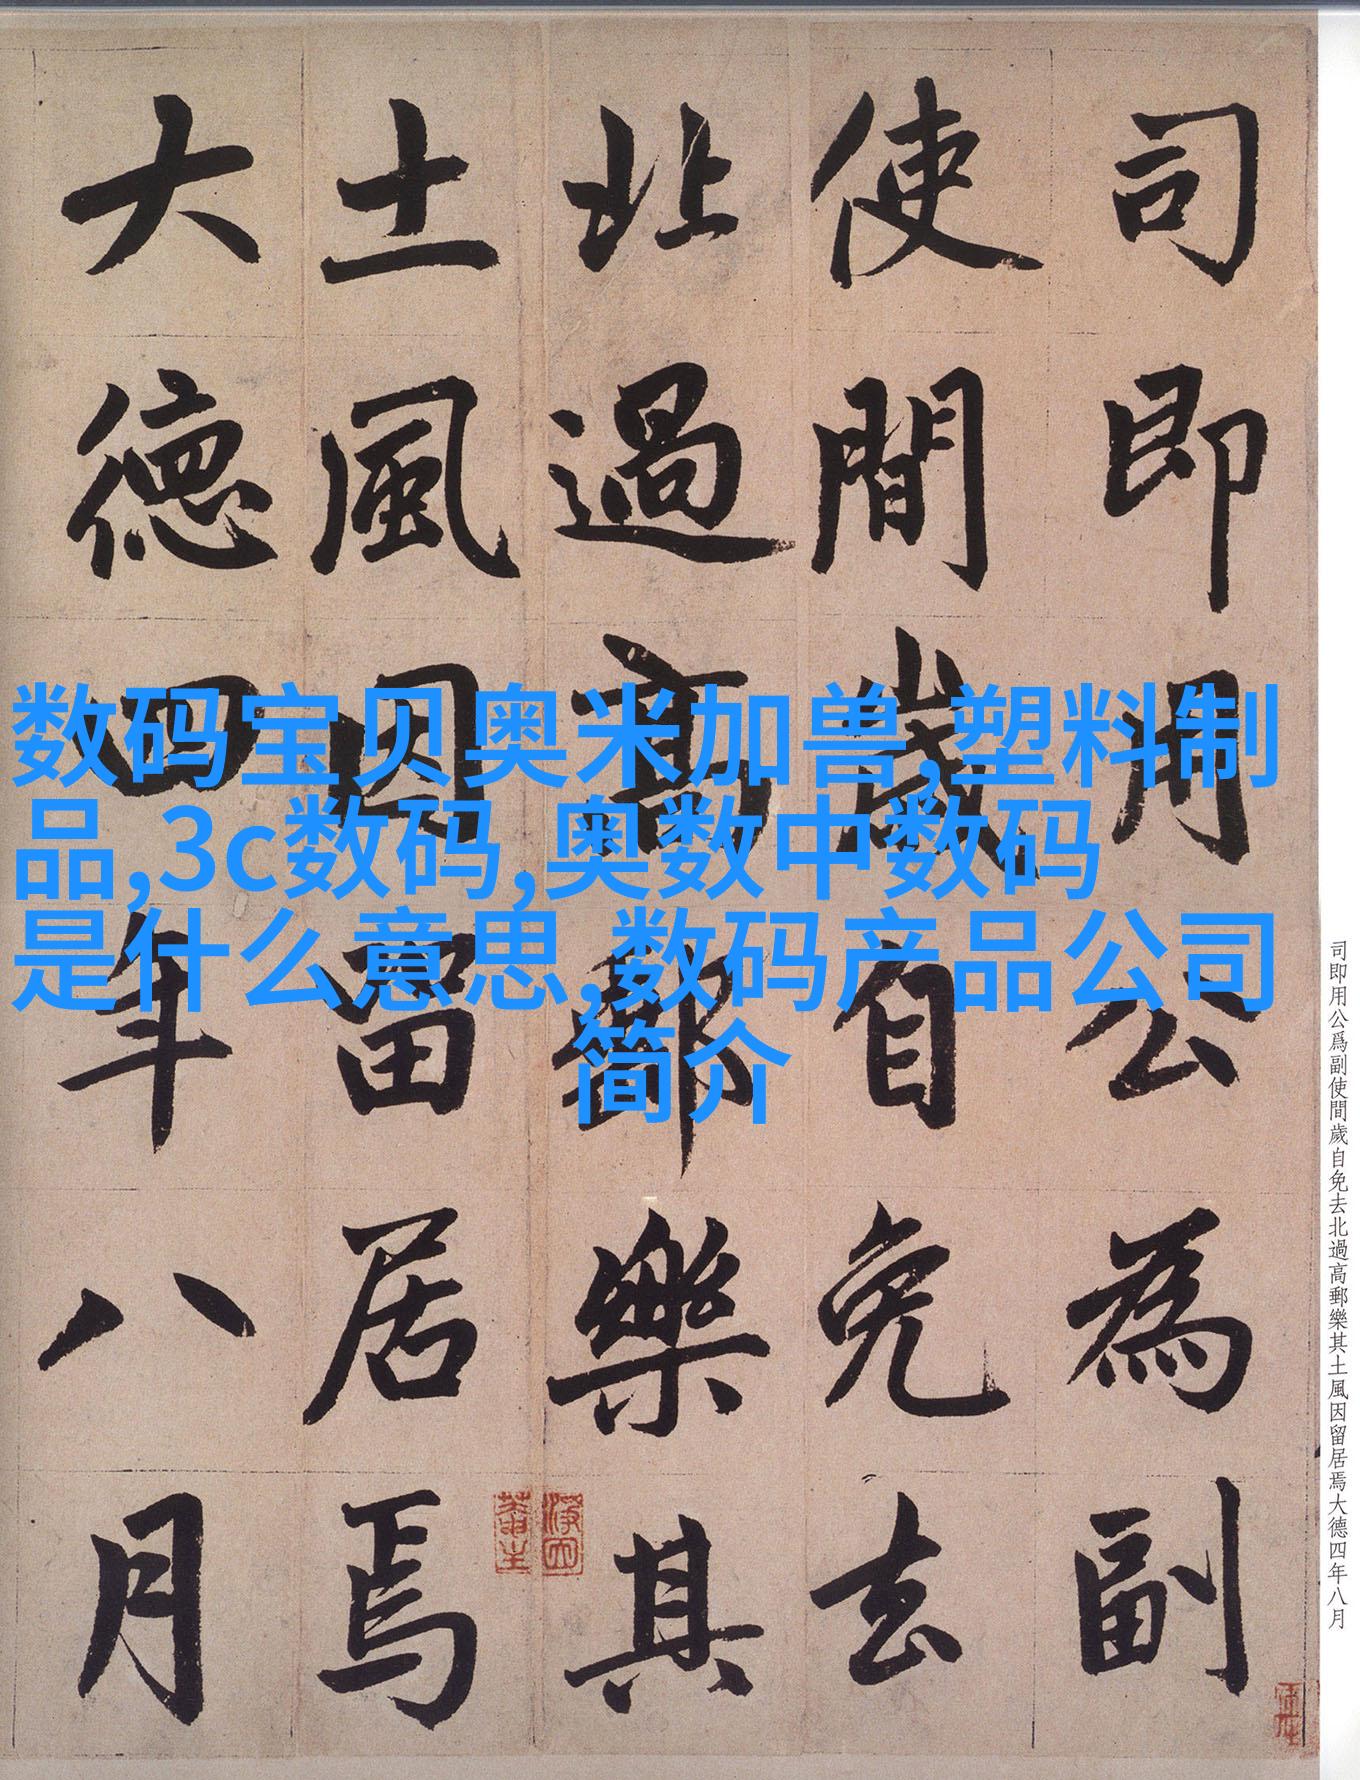 司即用公為副
使間歲自免去
北過高郵樂其
土風因留居焉
大德四年八月
数码宝贝奥米加兽,塑料制
品,3c数码,奥数中数码
是什么意思,数码产品公司
简介
司即用公爲副使間歲自免去北過高郵樂其土風因留居焉大德四年八月